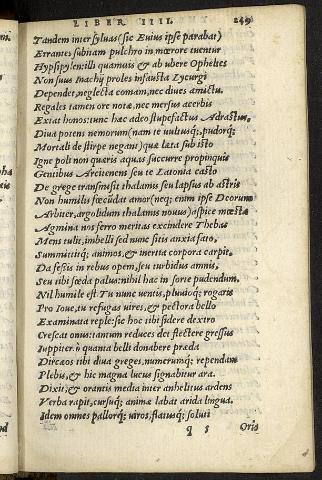 LIBER IIII. 249
Tandem inter syluas (sic Euius ipse parabat)
Errantes subitam pulchro in mœrore tuentur
Hypsipylen: illi quamuis & ab ubere Opheltes
Non suus Inachij proles infausta Lycurgi
Dependet, neglecta comam, nec diues amictu.
Regales tamen ore notæ, nec mersus acerbis
Extat honos: tunc hæc adeo stupefactus Adrastus,
Diua potens nemorum (nam te uultusq;, pudorq;
Mortali de stirpe negant) quæ læta sub isto
Igne poli non quæris aquas succurre propinquis
Gentibus Arcitenens seu te Latonia casto
De grege transmisit thalamis seu lapsus ab astris
Non humilis fœcũdat amor (neq; enim ipse Deorum
Arbiter, argolidum thalamis nouus) aspice mœsta
Agmina nos ferro meritas excindere Thebas
Mens tulit, imbelli sed nunc sitis anxia fato,
Summittitq; animos, & inerita corpora carpit.
Da fessis in rebus opem, seu turbidus amnis,
Seu tibi fœda palus: nihil hac in sorte pudendum.
Nil humile est. Tu nunc uentis, pluuioq; rogaris
Pro Ioue, tu refugas uires, & pectora bello
Exanimata reple: sic hoc tibi sidere dextro
Crescat onus: tantum reduces det flectere gressus
Iuppiter ò quanta belli donabere præda
Dircæos tibi diua greges, numerumq; rependam
Plebis, & hic magna lucus signabitur ara.
Dixit, & orantis media inter anhelitus ardens
Verba rapit, cursuq; animæ labat arida lingua.
Idem omnes pallorq; uiros, flatusq; soluti
q 5 Oris